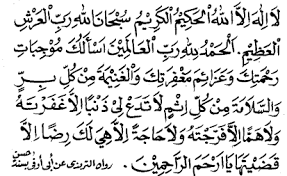 لَا اِلٰهَ اِلَّا اللهُ الْحَكِيْمُ الْكَرِيْمُ سُبْحَانَ اللهِ رَبِّ الْعَرْشِ
الْعَظِيْمِ. اَلْحَمْدُ لِلهِ رَبِّ الْعَالَمِيْنَ اَسْأَلُكَ مُوْجِبَاتِ
رَحْمَتِكَ وَعَزَائِمَ مَغْفِرَتِكَ وَالْغَنِيْمَةَ مِنْ كُلِّ بِرٍّ
وَالسَّلَامَةَ مِنْ كُلِّ اِثْمٍ لَا تَدَعْ لِيْ ذَنْبًا اِلَّا غَفَرْتَهُ
وَلَا هَمًّا اِلَّا فَرَّجْتَهُ وَلَا حَاجَةً اِلَّا هِيَ لَكَ رِضًا اِلَّا
قَضَيْتَهَا يَا اَرْحَمَ الرَّاحِمِيْنَ. رواه الترمذى عن أبى أوفى بسند حسن